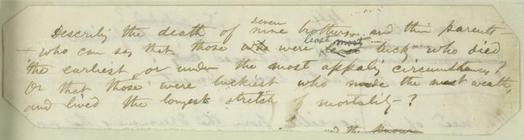 Describ the death of seven nine brothers and their parents –
– who can say that those who were least most luck who died
the earliest, or under the most appaling circumstances?
Or that those were luckiest who made the most wealth,
and lived the longest stretch of mortality – ?
and the